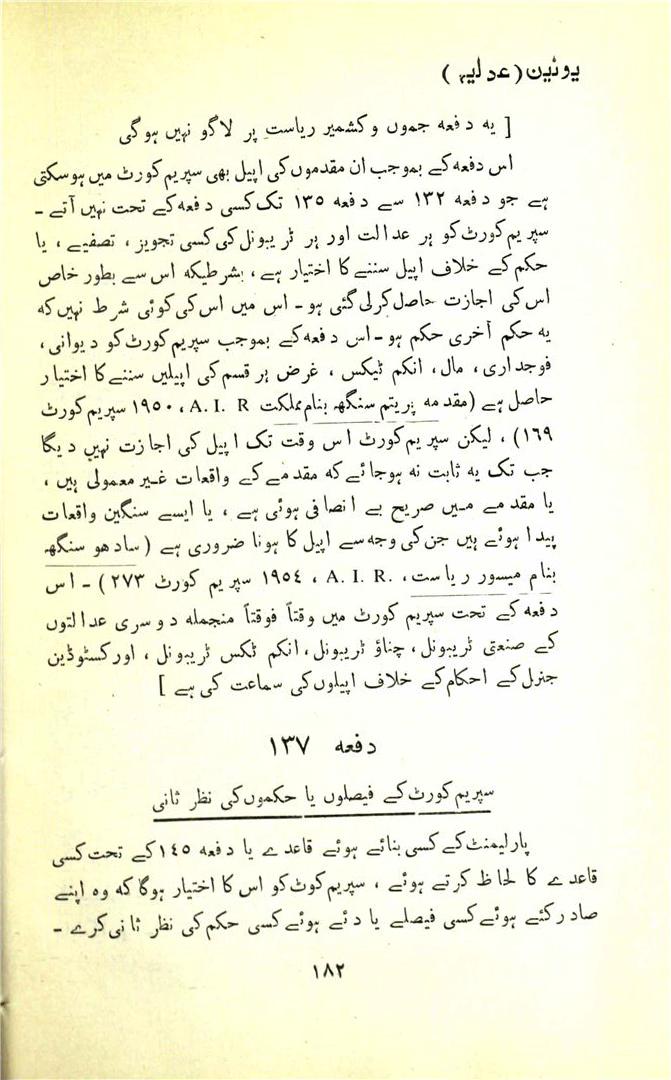 یونین (عدلیہ)
[ یہ دفعہ جموں و کشمیر ریاست پر لاگو نہیں ہوگی
اس دفعہ کے بموجب ان مقدموں کی اپیل بھی سپریم کورٹ میں ہوسکتی
ہے جو دفعہ ۱۳۲ سے دفعہ ۱۳۵ تک کسی دفعہ کے تحت نہیں آتے ۔
سپریم کورٹ کو ہر عدالت اور ہر ٹریبونل کی کسی تجویز ، تصفیے ، یا
حکم کے خلاف اپیل سننے کا اختیار ہے ، بشرطیکہ اس سے بطور خاص
اس کی اجازت حاصل کرلی گئی ہو ۔ اس میں اس کی کوئی شرط نہیں کہ
یہ حکم آخری حکم ہو ۔ اس دفعہ کے بموجب سپریم کورٹ کو دیوانی ،
فوجداری ، مال ، انکم ٹیکس ، غرض ہر قسم کی اپیلیں سننے کا اختیار
حاصل ہے (مقدمہ پریتم سنگھ بنام مملکت A. I. R ، ۱۹۵۰ سپریم کورٹ
۱۶۹) ، لیکن سپریم کورٹ اس وقت تک اپیل کی اجازت نہیں دیگا
جب تک یہ ثابت نہ ہوجائے کہ مقدمے کے واقعات غیر معمولی ہیں ،
یا مقدمے میں صریح بے انصافی ہوئی ہے ، یا ایسے سنگین واقعات
پیدا ہوئے ہیں جن کی وجہ سے اپیل کا ہونا ضروری ہے (سادھو سنگھ
بنام میسور ریاست ، A. I. R. ، ۱۹۵۴ سپریم کورٹ ۲۷۳) ۔ اس
دفعہ کے تحت سپریم کورٹ میں وقتاً فوقتاً منجملہ دوسری عدالتوں
کے صنعتی ٹریبونل ، چناؤ ٹریبونل ، انکم ٹکس ٹریبونل ، اور کسٹوڈین
جنرل کے احکام کے خلاف اپیلوں کی سماعت کی ہے ]
دفعہ ۱۳۷
سپریم کورٹ کے فیصلوں یا حکموں کی نظر ثانی
پارلیمنٹ کے کسی بنائے ہوئے قاعدے یا دفعہ ۱۴۵ کے تحت کسی
قاعدے کا لحاظ کرتے ہوئے ، سپریم کوٹ کو اس کا اختیار ہوگا کہ وہ اپنے
صادر کئے ہوئے کسی فیصلے یا دئے ہوئے کسی حکم کی نظر ثانی کرے ۔
۱۸۲